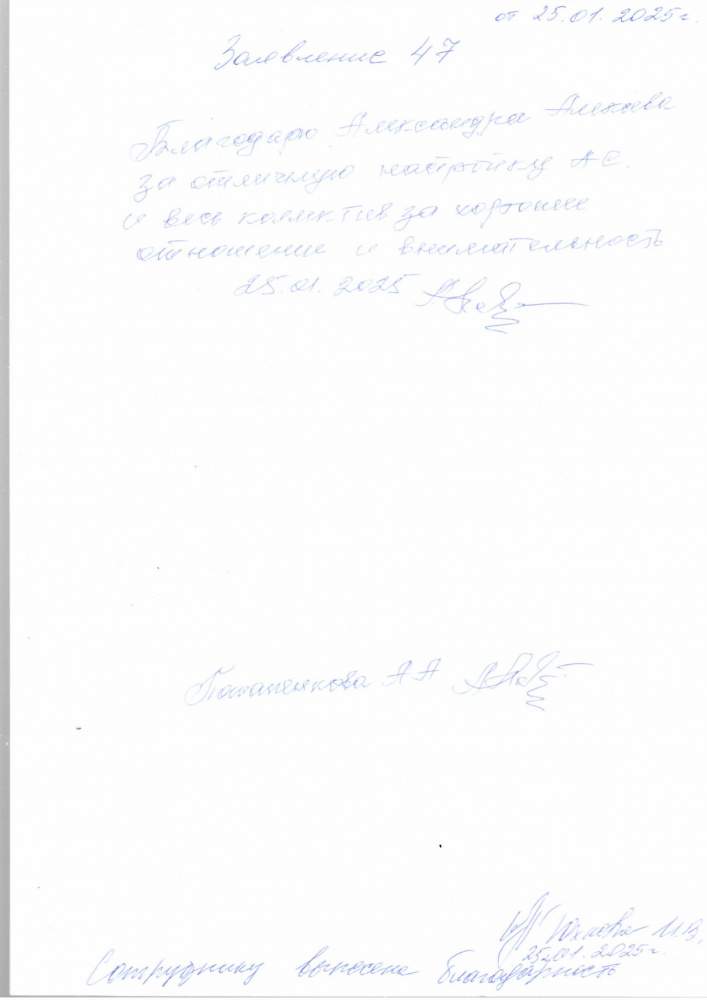 от 25.01.2025г.
Заявление 47
Благодарю Александра Алекаева
за отличную настройку АС.
и весь коллектив за хорошее
отношение и внимательность
25.01.2025
Потапенкова А А
И.В.
25.01.2025г.
Сотруднику вынесена благодарность